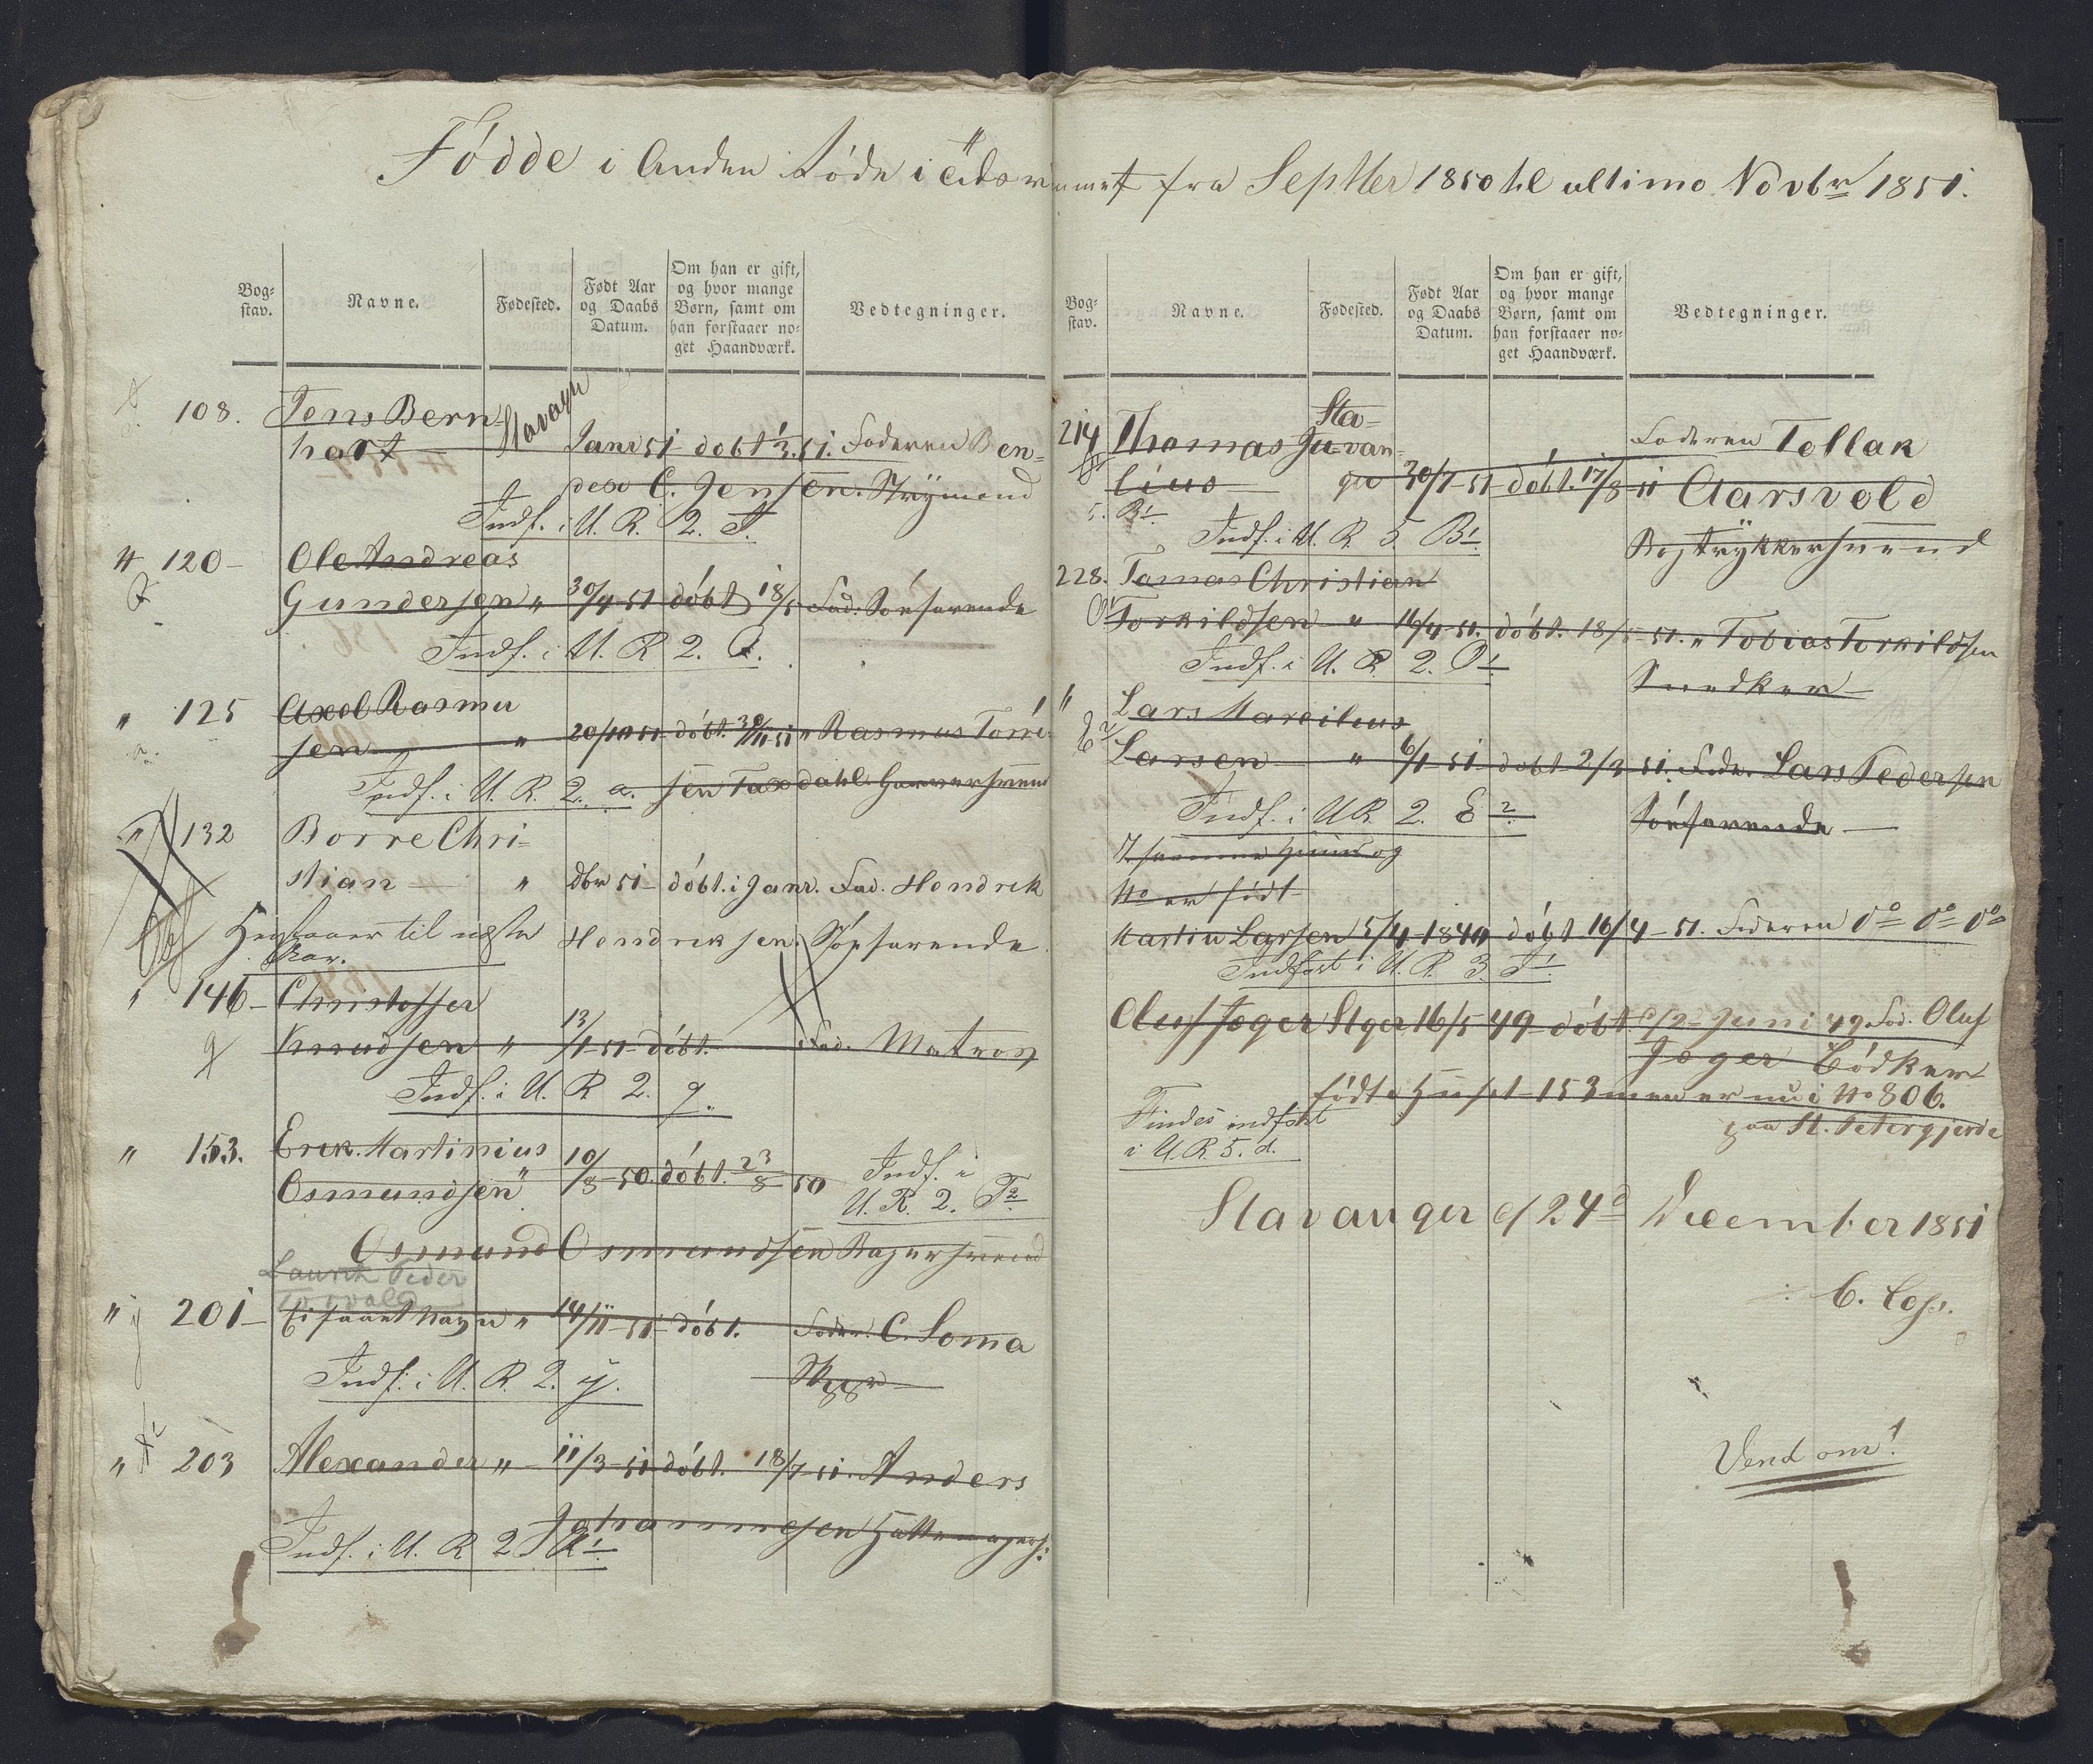 Födde i Anden Röde i tidsrummet fra Septbr 1850 til ultimo Novbr 1851.
Bog-
stav.
Navne.
Fødested.
Født Aar
og Daabs
Datum.
Om han er gift,
og hvor mange
Børn, samt om
han forstaaer no-
get Haandværk.
Vedtegninger.
108. Jens Bern-
hart Stavagr Janr 51 - döbt 1/3. 51. Faderen Ben-
C. Jensen. Strÿmand
Indf. i U. R. 2. T.
4 120 - Ole Andreas
Gundersen „ 30/4 51 döbt 18/5 Fad. Söefarende
Indf. i U. R. 2. Q.
„ 125 Axel Rasmu
sen „ 20/10 51 döbt. 30/11 51 „ Rasmus Torri-
sen Taxdahl Garversvend
Indf. i U. R. 2. a.
„ 132 Borre Chri-
stian - „ dbr 51 - döbt. i Janr. Fad. Hendrik
Hendriksen Söefarende
Henstaaer til næste
Aar.
„ 146 - Christoffer
Knudsen „ 13/1 51 döbt. - Fad. Matros
Indf. i U. R. 2. q.
„ 153. Erik Martinius
Osmundsen „ 10/8 50. döbt. 23/8 50
Indf. i
U. R. 2. T2
Osmund Osmundsen Bagersvend
Lauritz Peder
Torvald
„ 201 - Ei faaet Navn „ 14/11 51 döbt. Fader. C. Soma
Indf. i U. R. 2. y.
„ 203 Alexander „ - 11/3 51 döbt. 18/7 51. Anders
Johannesen Hattemagers.
Indf. i U. R. 2.
Bog-
stav.
Navne.
Fødested.
Født Aar
og Daabs
Datum.
Om han er gift,
og hvor mange
Børn, samt om
han forstaaer no-
get Haandværk.
Vedtegninger.
214 Thomas Ju- Sta-
van- Faderen Tollak
lius ger 30/7 51 döbt. 17/8 51 Aarsvold
5. B1. Bogtrÿkkersvend
Indf. i U. R. 5. B1.
228. Tomas Christian
Torkildsen „ 16/4 51. döbt. 18/5 51. „ Tobias Torkildsen
Snedker
Indf. i U. R. 2. O1.
„ Lars Marcilius
Larsen „ 6/1 51 döbt 2/3 51. Fadr. Lars Pedersen
Söefarende
Indf. i U R. 2. E2
I samme Huus og
No er födt
Martin Larsen 5/4 1849 döbt 16/4 51. Faderen do do do
Indfört i U. R. 3. T1.
Oluf Jæger Stger 16/5 49 döbt 2 Juni 49 Fad. Oluf
Jæger Bödker
födt i Huset 153 men er nu i No 806.
paa St. Petersgjerde
Findes indfört
i U. R. 5. d.
Stavanger d 24d December 1851
C.
Vend om!